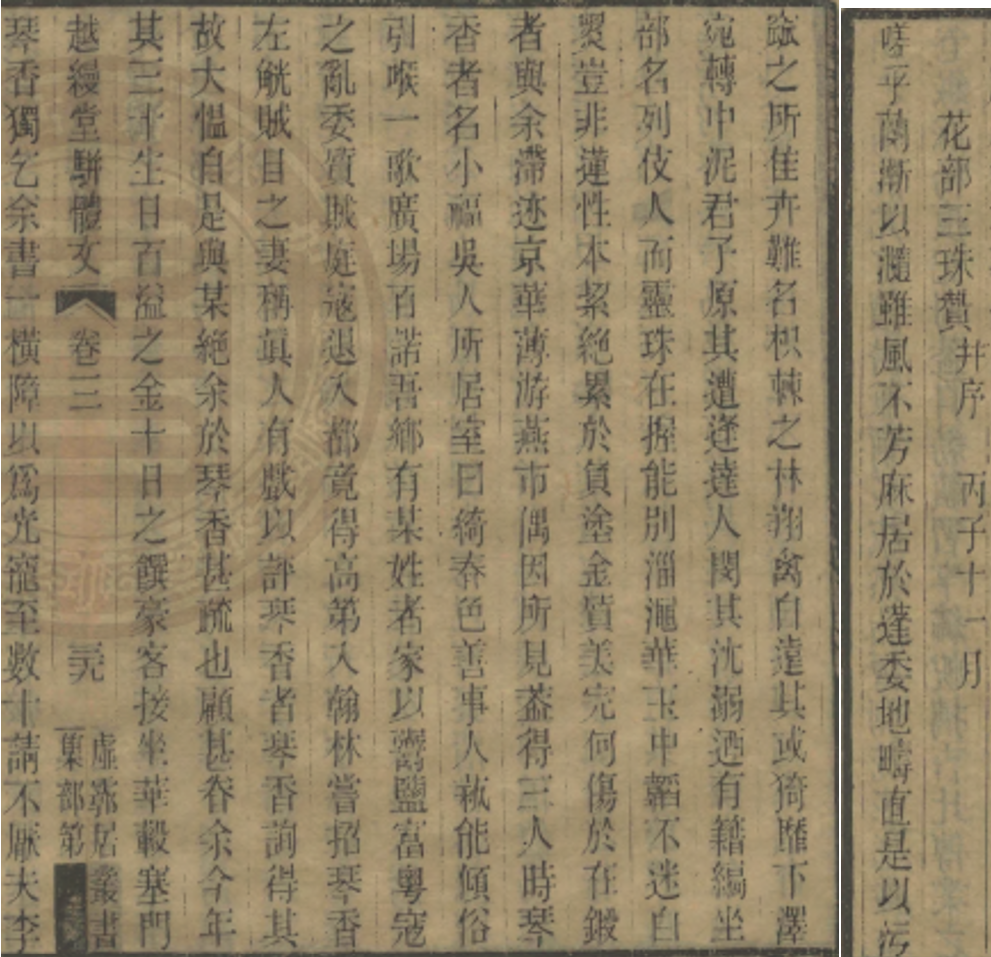 花部三珠贊并序　丙子十一月
嗟乎蘭漸以瀡雖風不芳麻居於蓬委地疇直是以污
蟲之所隹卉難名枳棘之林翔禽自遠其或猗靡下澤
宛轉中泥君子原其遭逢達人閔其沈溺迺有籍編坐
部名列伎人而靈珠在握能別淄澠華玉中韜不迷白
黑豈非蓮性本絜絶累於負塗金質美完何傷於在鍛
者與余滯迹京華薄游燕市偶因所見葢得三人時琴
香者名小福吳人所居室曰綺春色善事人蓺能傾俗
引喉一歌廣場百諾吾鄉有某姓者家以鬻鹽富粵寇
之亂委質賊庭寇退入都竟得高第入翰林嘗招琴香
左觥賊目之妻稱眞人有戲以評琴香者琴香詢得其
故大愠自是與某絶余於琴香甚疏也顧甚眷余今年
其三十生日百溢之金十日之饌豪客接坐華轂塞門
越縵堂駢體文　卷三　三九　虛霩居叢書
第　部
琴香獨乞余書一橫障以爲光寵至數十請不厭夫李